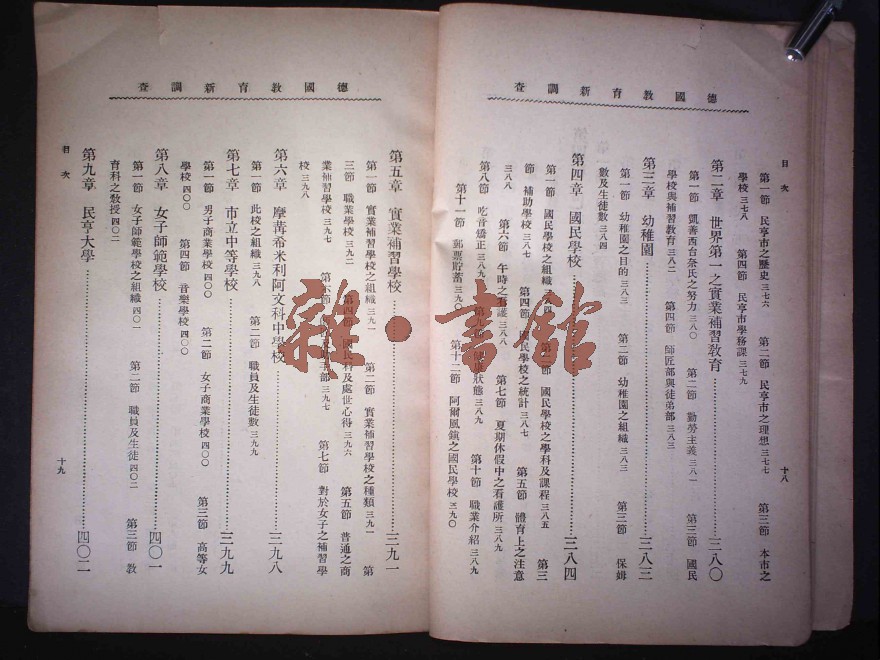 德國教育新調查
目次
十八
第一節 民亨市之歷史三七六 第二節 民亨市之理想三七七 第三節 本市之
學校三七八 第四節 民亨市學務課三七九
第二章 世界第一之實業補習教育……三八〇
第一節 凱善西台奈氏之努力三八〇 第二節 勤勞主義三八一 第三節 國民
學校與補習教育三八二 第四節 師匠部與徒弟部三八三
第三章 幼稚園……三八三
第一節 幼稚園之目的三八三 第二節 幼稚園之組織三八三 第三節 保姆
數及生徒數三八四
第四章 國民學校……三八四
第一節 國民學校之組織三八四 第二節 國民學校之學科及課程三八五 第三
節 補助學校三八七 第四節 國民學校之統計三八七 第五節 體育上之注意
三八八 第六節 午時之看護三八八 第七節 夏期休假中之看護所三八九
第八節 吃音矯正三八九 第九節 狀態三八九 第十節 職業介紹三八九
第十一節 郵票貯蓄三九〇 第十二節 阿爾風鎮之國民學校三九〇
德國教育新調查
第五章 實業補習學校……三九一
第一節 實業補習學校之組織三九一 第二節 實業補習學校之種類三九一 第
三節 職業學校三九二 第四節 國民科及處世心得三九六 第五節 普通之商
業補習學校三九七 第六節 部三九七 第七節 對於女子之補習學
校三九八
第六章 摩萬希米利阿文科中學校……三九八
第一節 此校之組織三九八 第二節 職員及生徒數三九九
第七章 市立中等學校……三九九
第一節 男子商業學校四〇〇 第二節 女子商業學校四〇〇 第三節 高等女
學校四〇〇 第四節 音樂學校四〇〇
第八章 女子師範學校……四〇一
第一節 女子師範學校之組織四〇一 第二節 職員及生徒四〇二 第三節 教
育科之教授四〇二
第九章 民亨大學……四〇二
目次
十九
雜·書館